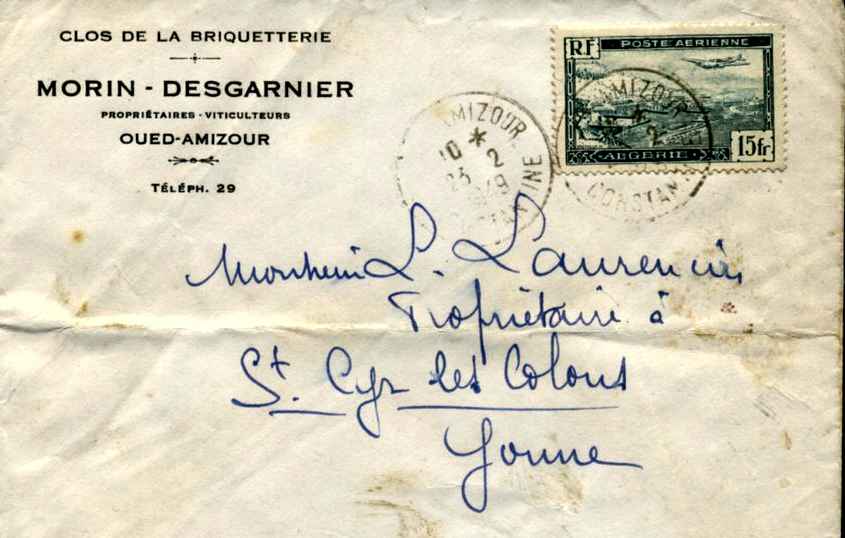 CLOS DE LA BRIQUETTERIE
MORIN - DESGARNIER
PROPRIÉTAIRES - VITICULTEURS
OUED-AMIZOUR
TÉLÉPH. 29
RF
POSTE AERIENNE
ALGERIE
15fr
AMIZOUR
10 * 2
23
AMIZOUR
CONSTAN
Monsieur L. Laurencin
Propriétaire à
St. Cyr les Colons
Yonne